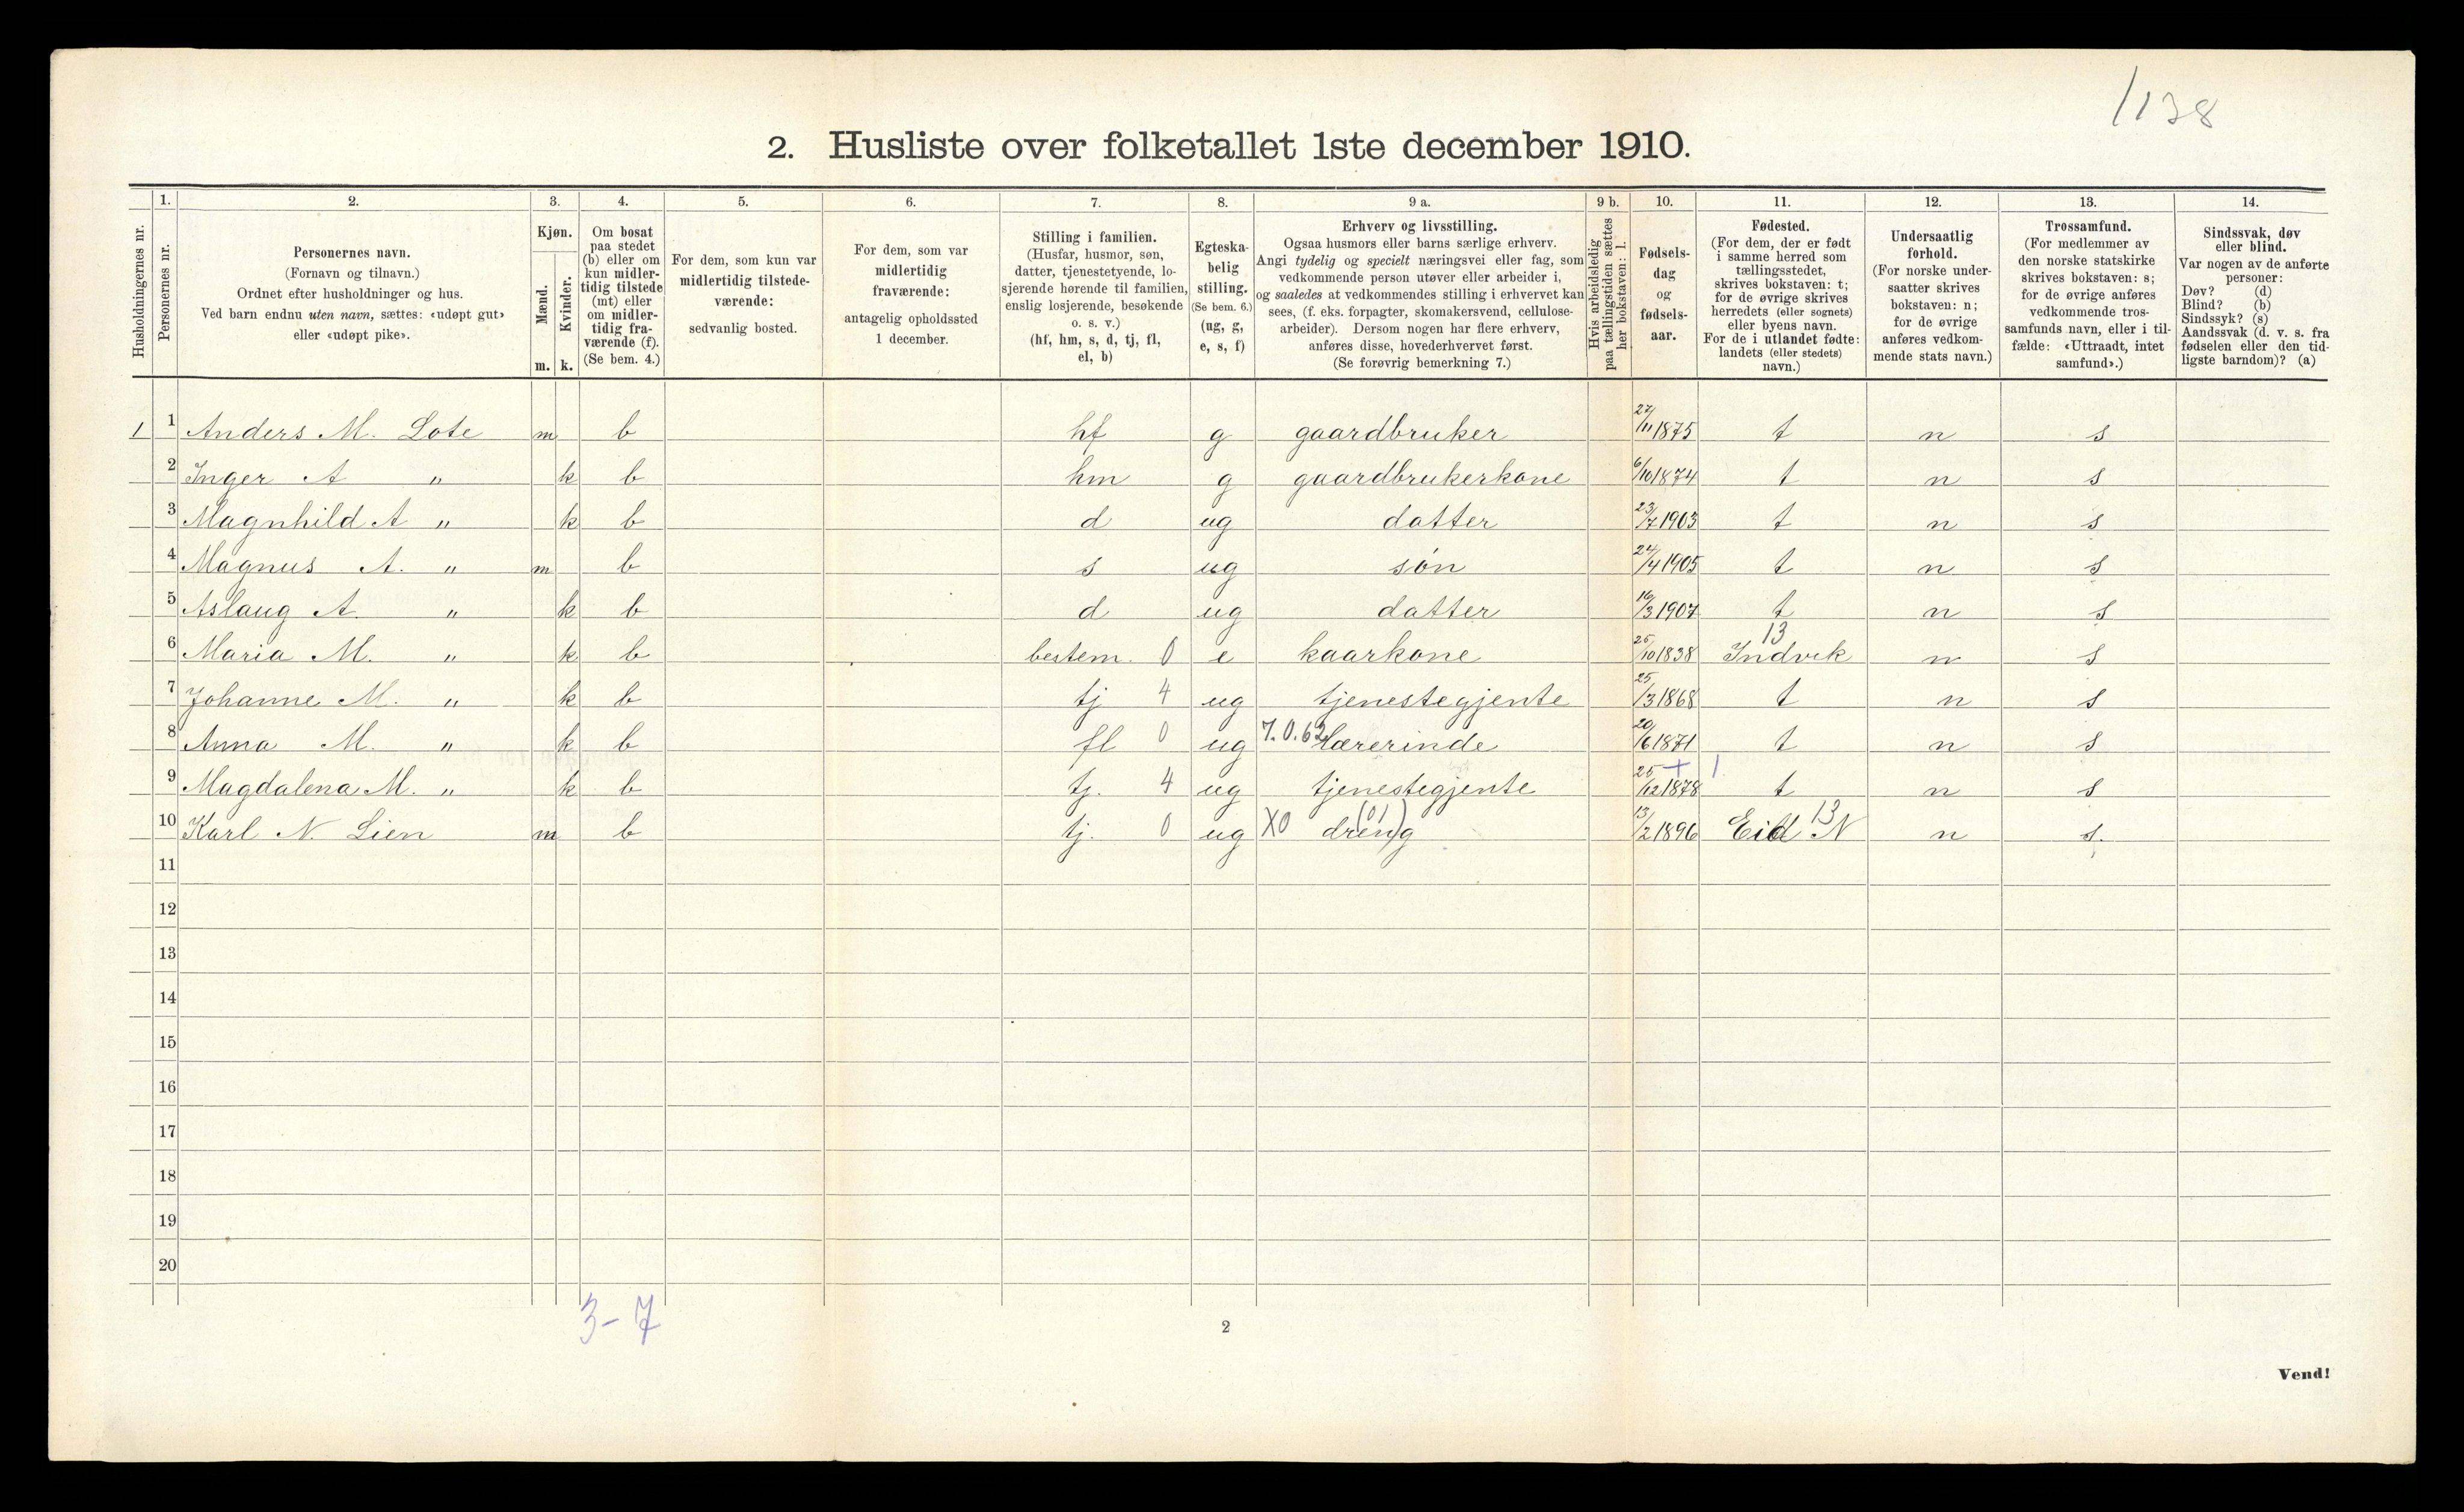 1138
2. Husliste over folketallet 1ste december 1910.
Husholdningernes nr.
1.
Personernes nr.
2.
Personernes navn.
(Fornavn og tilnavn.)
Ordnet efter husholdninger og hus.
Ved barn endnu uten navn, sættes: «udøpt gut»
eller «udøpt pike».
3.
Kjøn.
Mænd.
Kvinder.
m. k.
4.
Om bosat
paa stedet
(b) eller om
kun midler-
tidig tilstede
(mt) eller
om midler-
tidig fra-
værende (f).
(Se bem. 4.)
5.
For dem, som kun var
midlertidig tilstede-
værende:
sedvanlig bosted.
6.
For dem, som var
midlertidig
fraværende:
antagelig opholdssted
1 december.
7.
Stilling i familien.
(Husfar, husmor, søn,
datter, tjenestetyende, lo-
sjerende hørende til familien,
enslig losjerende, besøkende
o. s. v.)
(hf, hm, s, d, tj, fl,
el, b)
8.
Egteska-
belig
stilling.
(Se bem. 6.)
(ug, g,
e, s, f)
9 a.
Erhverv og livsstilling.
Ogsaa husmors eller barns særlige erhverv.
Angi tydelig og specielt næringsvei eller fag, som
vedkommende person utøver eller arbeider i,
og saaledes at vedkommendes stilling i erhvervet kan
sees, (f. eks. forpagter, skomakersvend, cellulose-
arbeider). Dersom nogen har flere erhverv,
anføres disse, hovederhvervet først.
(Se forøvrig bemerkning 7.)
9 b.
Hvis arbeidsledig
paa tællingstiden sættes
her bokstaven: l.
10.
Fødsels-
dag
og
fødsels-
aar.
11.
Fødested.
(For dem, der er født
i samme herred som
tællingsstedet,
skrives bokstaven: t;
for de øvrige skrives
herredets (eller sognets)
eller byens navn.
For de i utlandet fødte:
landets (eller stedets)
navn.)
12.
Undersaatlig
forhold.
(For norske under-
saatter skrives
bokstaven: n;
for de øvrige
anføres vedkom-
mende stats navn.)
13.
Trossamfund.
(For medlemmer av
den norske statskirke
skrives bokstaven: s;
for de øvrige anføres
vedkommende tros-
samfunds navn, eller i til-
fælde: «Uttraadt, intet
samfund».)
14.
Sindssvak, døv
eller blind.
Var nogen av de anførte
personer:
Døv? (d)
Blind? (b)
Sindssyk? (s)
Aandssvak (d. v. s. fra
fødselen eller den tid-
ligste barndom)? (a)
1 1 Anders M. Lote m b hf g gaardbruker 27/11 1875 t n s
2 Inger A " k b hm g gaardbrukerkone 6/10 1874 t n s
3 Magnhild A " k b d ug datter 23/7 1903 t n s
4 Magnus A. " m b s ug søn 24/4 1905 t n s
5 Aslaug A. " k b d ug datter 16/3 1907 t n s
6 Maria M. " k b bestem. 0 e kaarkone 25/10 1838 13 Indvik n s
7 Johanne M. " k b tj 4 ug tjenestegjente 25/3 1868 t n s
8 Anna M. " k b fl 0 ug 7.0.62 lærerinde 20/6 1871 t n s
9 Magdalena M. " k b tj. 4 ug tjenestegjente 25/12 1878 + 1 t n s
10 Karl N. Lien m b tj. 0 ug X0 dreng (01) 13/2 1896 Eid N 13 n s.
11
12
13
14
15
16
17
18
19
20
3-7
2
Vend!